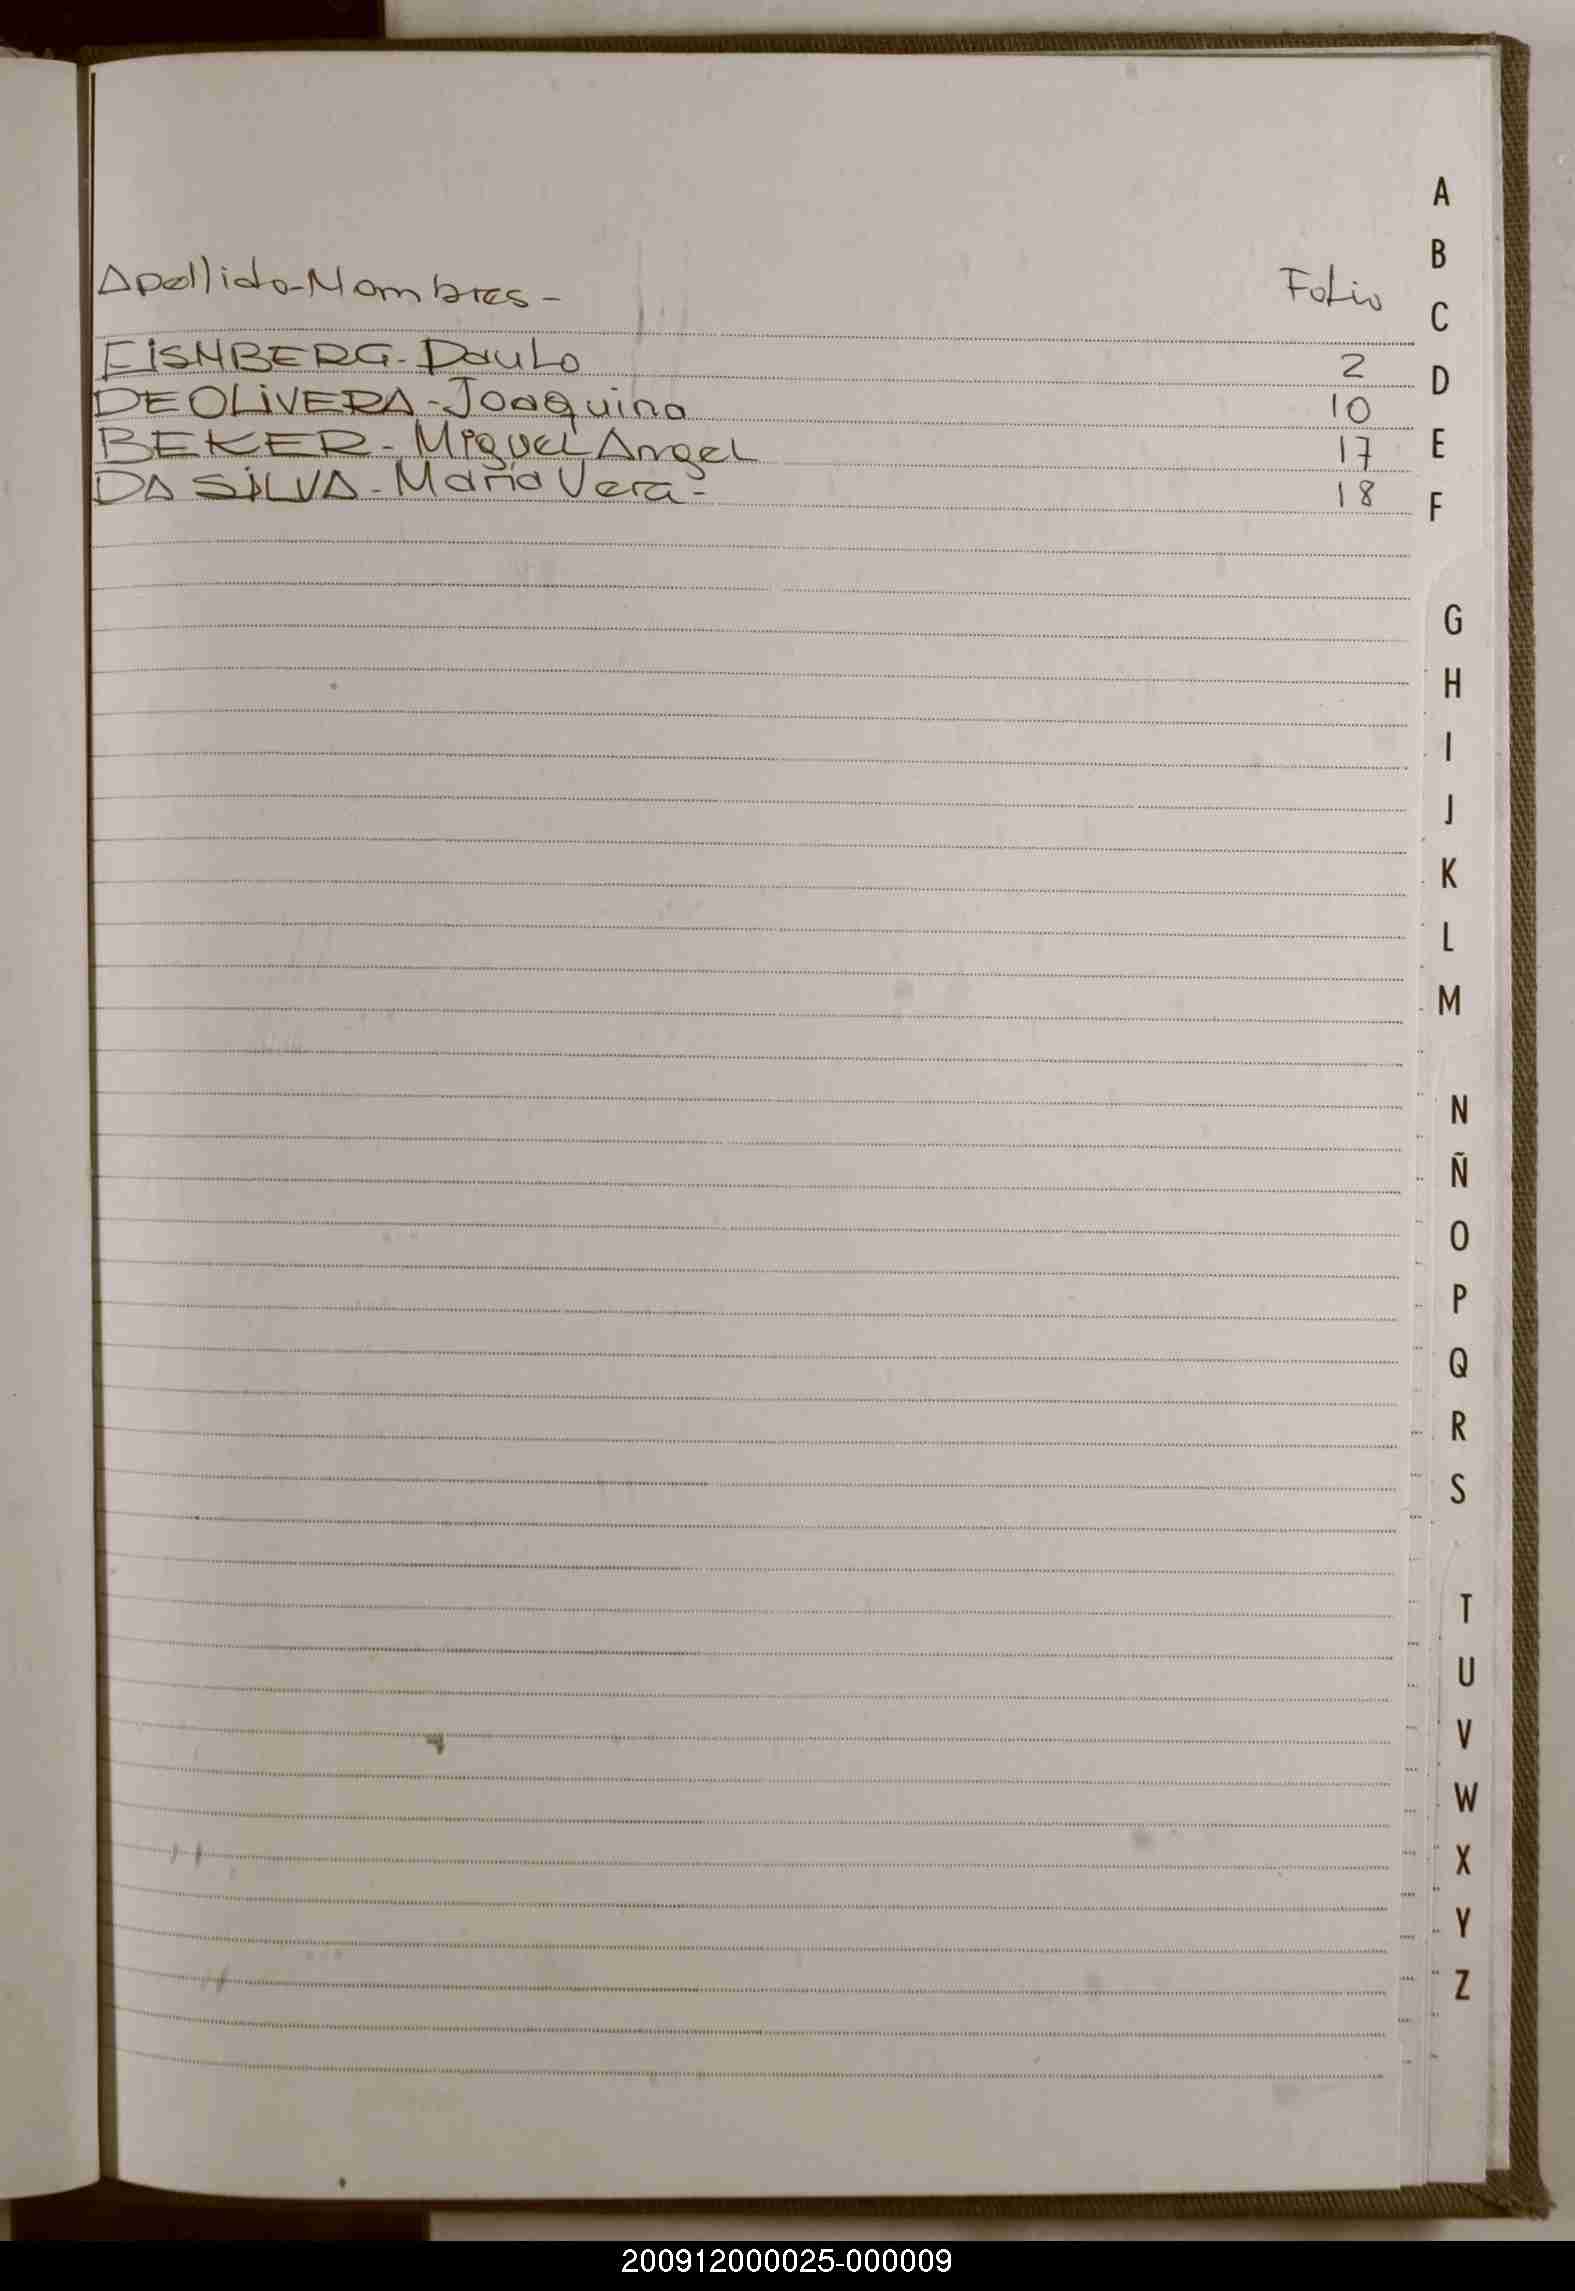 Apellido-Nombres- Folio
EISNBERG-Paulo 2
DE OLIVERA-Joaquina 10
BEKER-Miguel Angel 17
DA SILVA-Maria Vera- 18
A
B
C
D
E
F
G
H
I
J
K
L
M
N
Ñ
O
P
Q
R
S
T
U
V
W
X
Y
Z
200912000025-000009